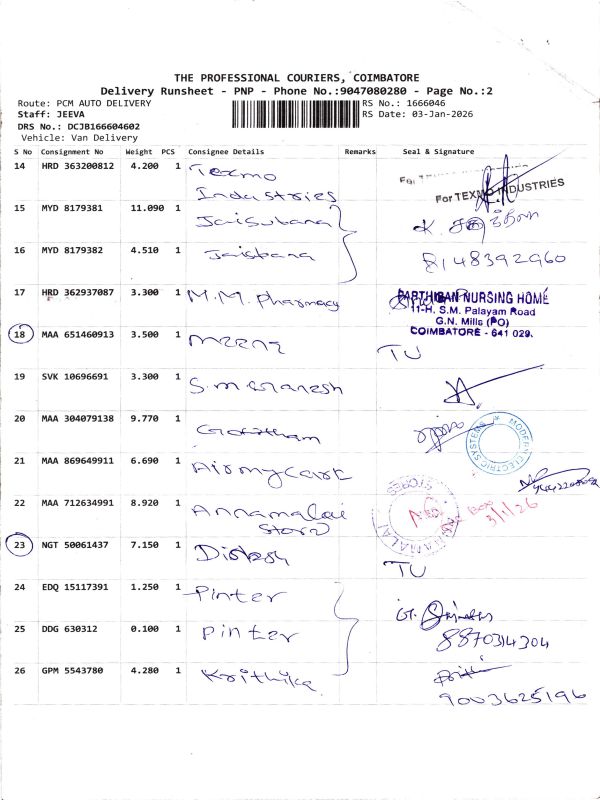 THE PROFESSIONAL COURIERS, COIMBATORE
Delivery Runsheet - PNP - Phone No.:9047080280 - Page No.:2
Route: PCM AUTO DELIVERY RS No.: 1666046
Staff: JEEVA RS Date: 03-Jan-2026
DRS No.: DCJB166604602
Vehicle: Van Delivery
S No Consignment No Weight PCS Consignee Details Remarks Seal & Signature
14 HRD 363200812 4.200 1 Texmo Industries For TEXMO INDUSTRIES
15 MYD 8179381 11.090 1 Jaisubana
16 MYD 8179382 4.510 1 Jaisbana 8148392960
17 HRD 362937087 3.300 1 M.M. Pharmacy PARTHIBAN NURSING HOME
11-H, S.M. Palayam Road
G.N. Mills (PO)
COIMBATORE - 641 029.
18 MAA 651460913 3.500 1 Meena TU
19 SVK 10696691 3.300 1 S.m Ganesh
20 MAA 304079138 9.770 1 Gowtham MODERN ELECTRIC SYSTEMS
21 MAA 869649911 6.690 1 Airmycart
22 MAA 712634991 8.920 1 Annamalai Store 3/1/26
23 NGT 50061437 7.150 1 Dinesh TU
24 EDQ 15117391 1.250 1 Pinter
25 DDG 630312 0.100 1 Pinter 8870314304
26 GPM 5543780 4.280 1 Krithika 9003625196